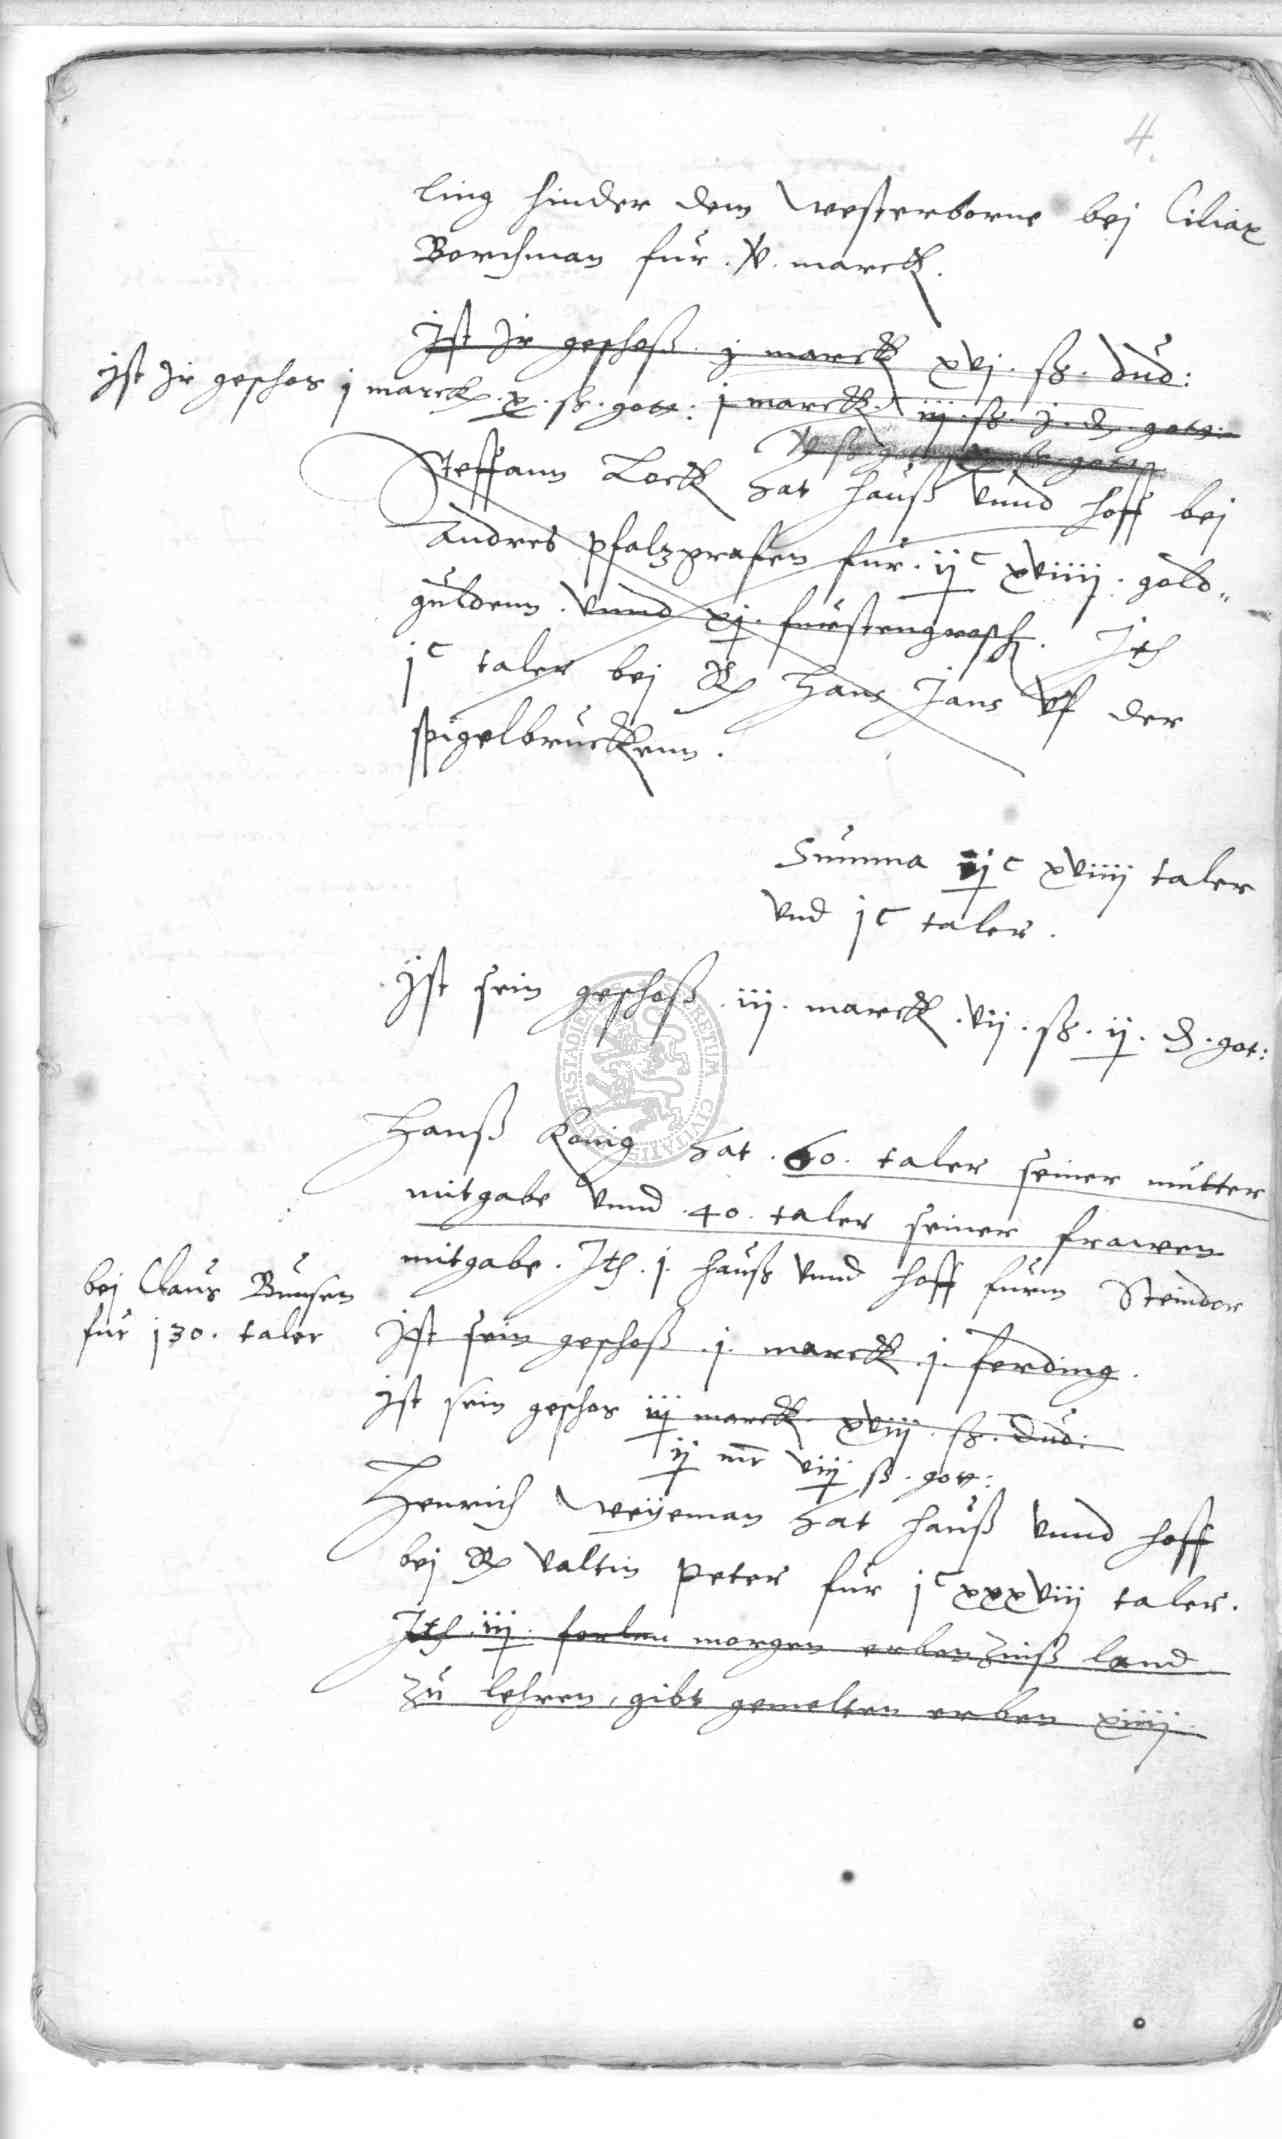 4.
ling hinder dem Westerborne bej Ciliax
Borchman fur . V . marck .
Ist Ir geschoß . j marck xvj . ß . dud:
Ist Ir geschos j marck . x . ß . gott: j marck . iij . ß . j . d . gott:
Steffann Lock hat hauß vnnd hoff bej
Andres pfalzgrafen fur . ij c xviiij . gold„
guldenn . vnnd xj . furstengrosch . Jth
j c taler bej Hans Jans vf der
spigelbruckenn .
Summa ij c xviiij taler
vnd j c taler .
Ist sein geschoß . iij . marck . vij . ß . ij . d . got:
Hanß Konig hat . 60 . taler seiner mutter
mitgabe vnnd . 40 . taler seiner frawen
mitgabe . Jth . j . hauß vnnd hoff furm Steindor
bej Claus Bunsen
fur 130 . taler
Ist sein geschoß . j . marck . j . ferding .
Ist sein geschos iij marck . xviij . ß . dud:
ij mr viij ß . gott:
Henrich Weyeman hat hauß vnnd hoff
bej valtin Peter fur j c xxxviij taler .
Jth . iij . forlen morgen erbenzinß land
zu lehren, gibt gemelten erben xiiij